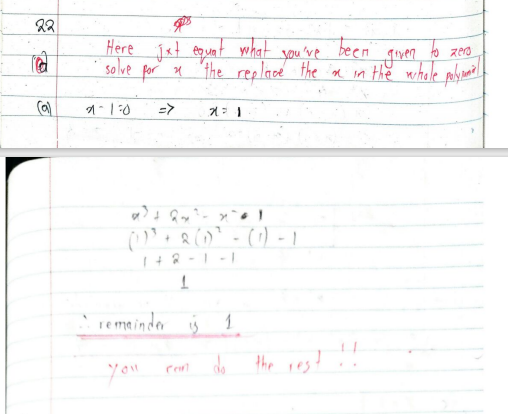 22
Here jxt equat what you've been given to zero
solve for x the replace the x in the whole polynomial
(a) x - 1 = 0 => x = 1
x³ + 2x² - x - 1
(1)³ + 2(1)² - (1) - 1
1 + 2 - 1 - 1
1
∴ remainder is 1
you can do the rest !!